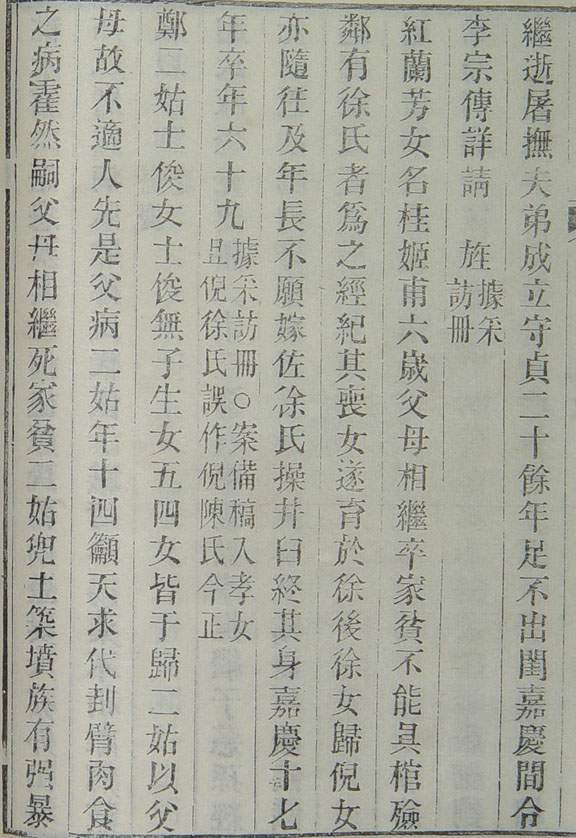 繼逝屠撫夫弟成立守貞二十餘年足不出閨嘉慶間令
李宗傳詳請　旌據采訪冊
紅蘭芳女名桂姬甫六歲父母相繼卒家貧不能具棺殮
鄰有徐氏者爲之經紀其喪女遂育於徐後徐女歸倪女
亦隨往及年長不願嫁佐徐氏操井臼終其身嘉慶十七
年卒年六十九據采訪冊○案備稿入孝女且倪徐氏誤作倪陳氏今正
鄭二姑士俊女士俊無子生女五四女皆于歸二姑以父
母故不適人先是父病二姑年十四籲天求代刲臂肉食
之病霍然嗣父母相繼死家貧二姑兜土築墳族有强暴